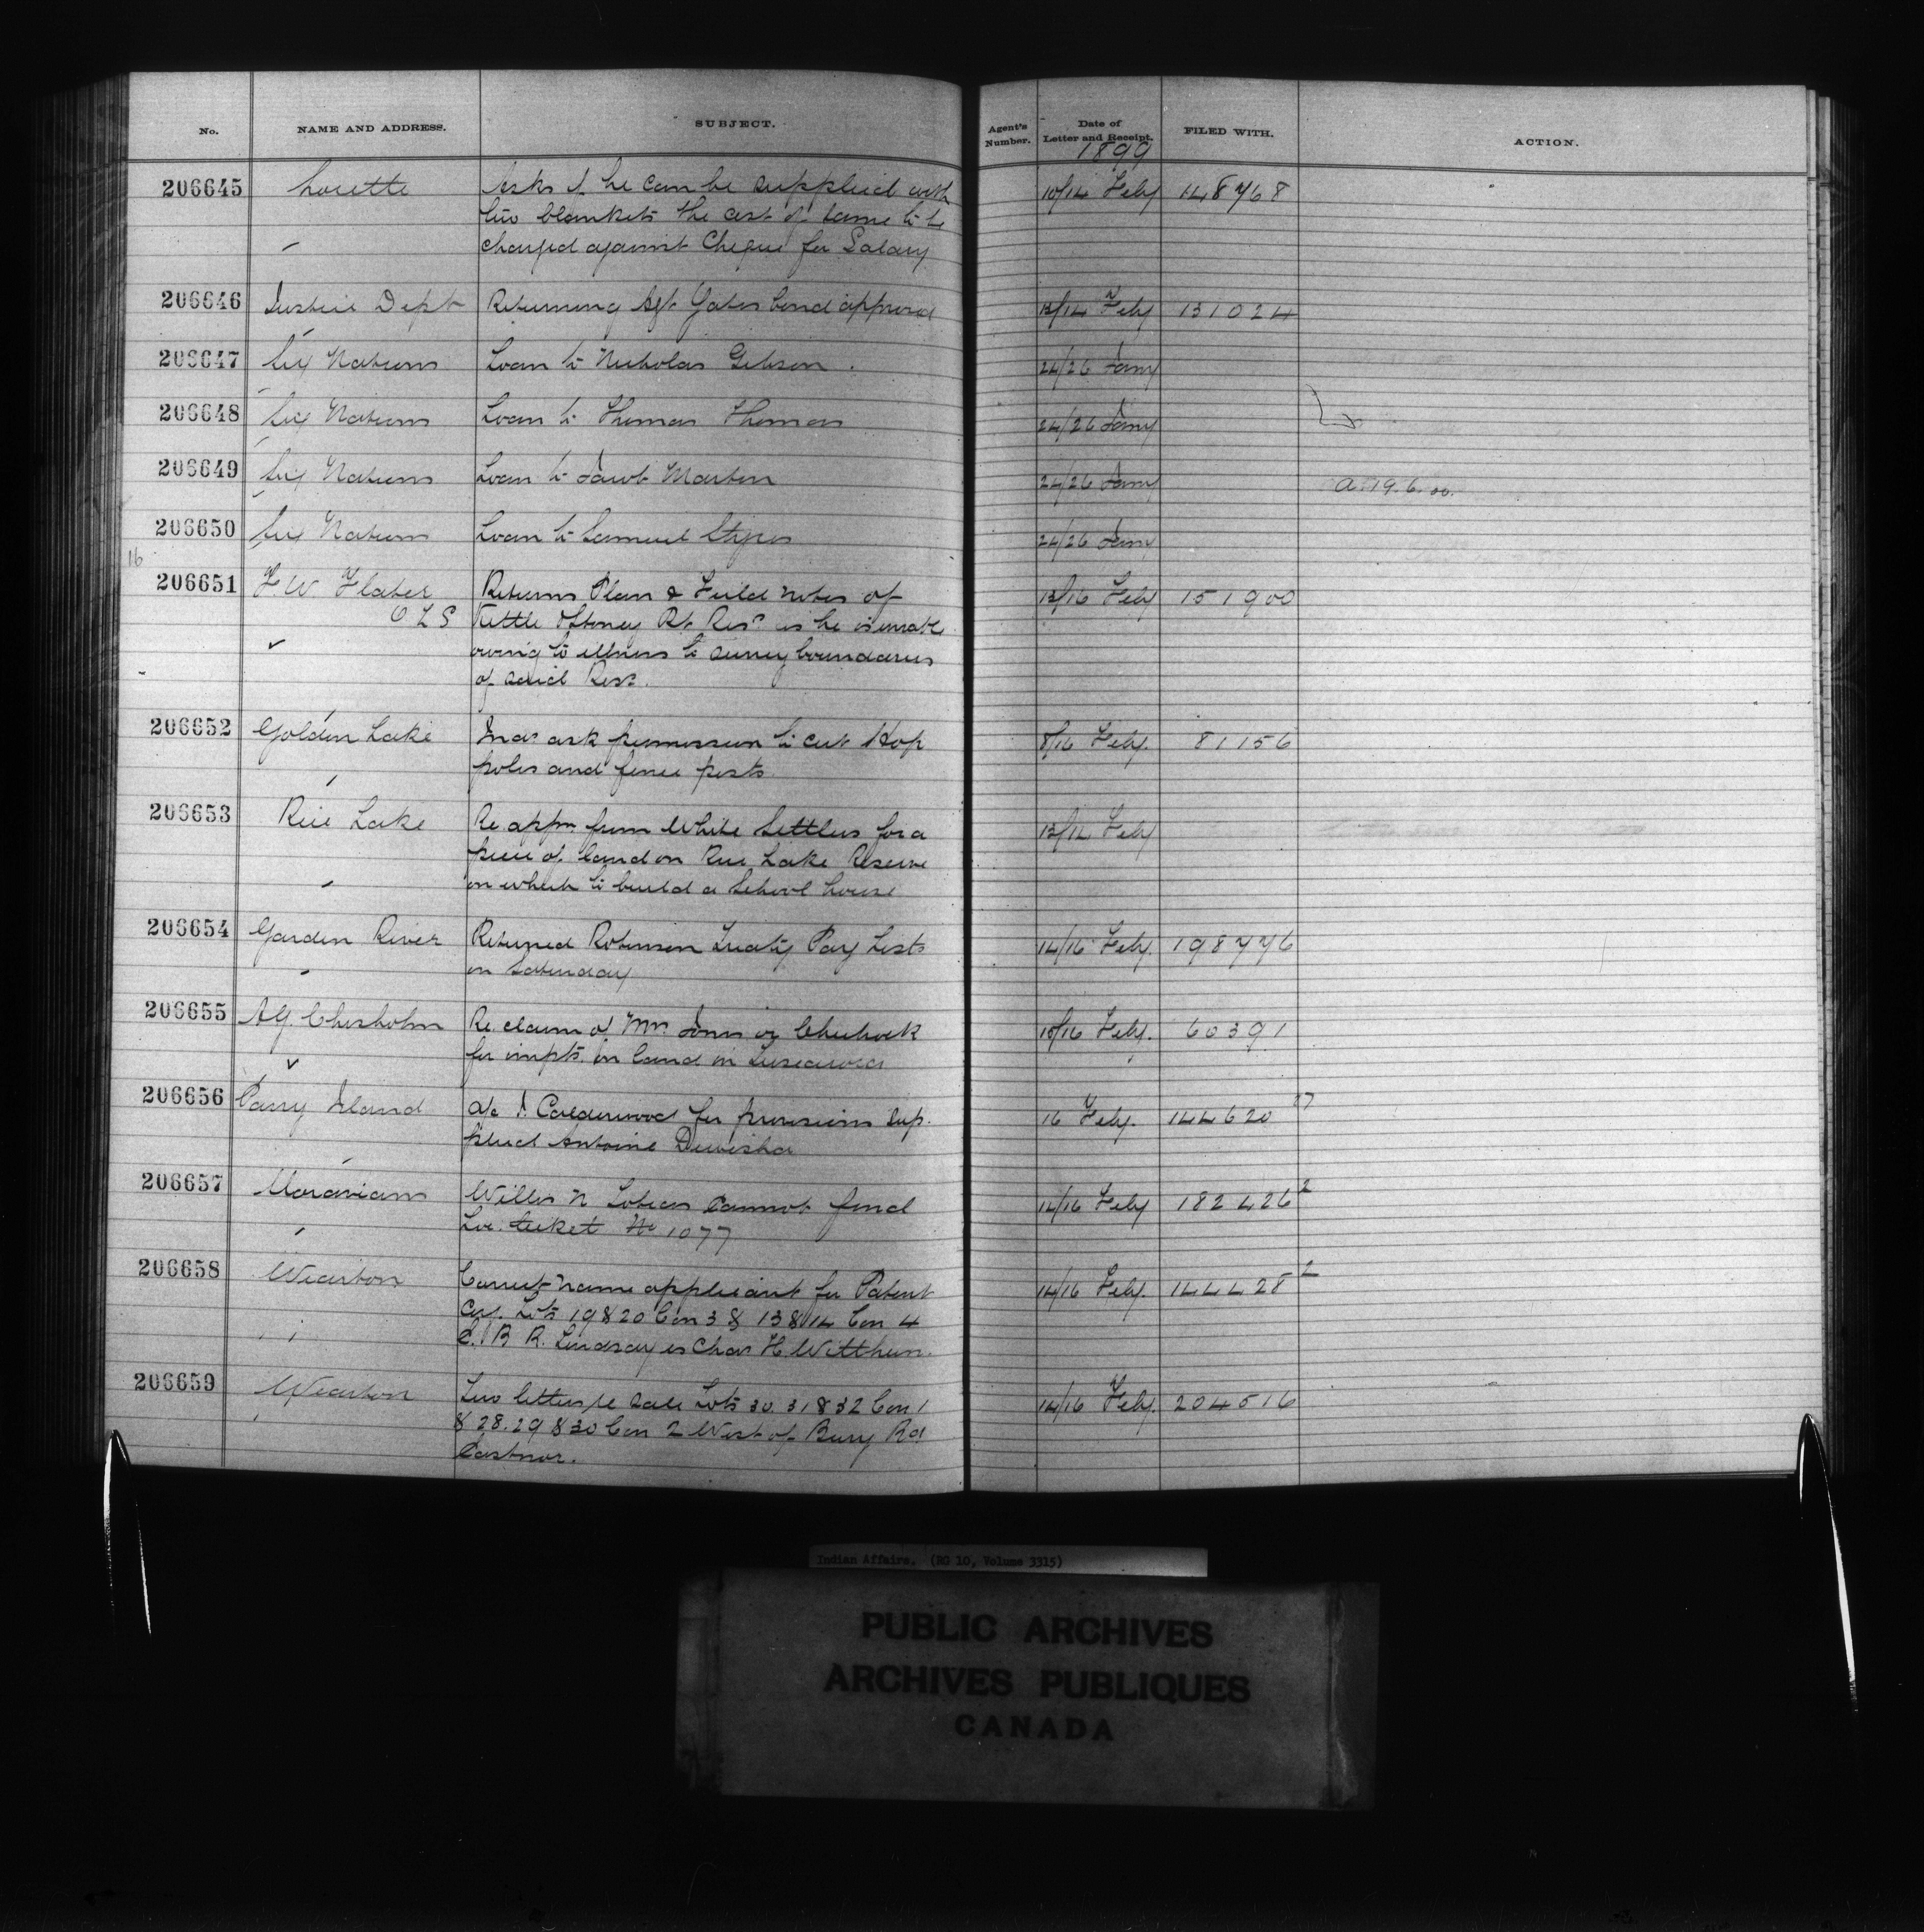 No. NAME AND ADDRESS. SUBJECT. Agent's Number. Date of Letter and Receipt. FILED WITH. ACTION.
1899
206645 Lorette Asks if he can be supplied with 10/14 Feby 148768
two blankets the cost of same to be
charged against Cheque for Salary
206646 Justice Dept Returning Agt Yates bond approved 13/14 Feby 131024
206647 Six Nations Loan to Nicholas Gibson. 24/26 Jany
206648 Six Nations Loan to Thomas Thomas 24/26 Jany
206649 Six Nations Loan to Jacob Martin 24/26 Jany a. 19.6.00.
206650 Six Nations Loan to Samuel 24/26 Jany
16
206651 F W Flater Returns Plan & Field notes of 13/16 Feby 151900
O L S Kettle & Stoney Pt Res. as he is unable
owing to illness to survey boundaries
of said Res.
206652 Golden Lake Inds ask permission to cut Hop 8/16 Feby. 81156
poles and fence posts
206653 Rice Lake Re appn from White Settlers for a Feby
piece of land on Rice Lake Reserve
on which to build a School house
206654 Garden River Returned Robinson Treaty Pay Lists 14/16 Feby. 198776
on Saturday
206655 A G Chisholm Re. claim of Mrs. or Chechock 10/16 Feby. 60391
for impts. on land in Tuscarora
206656 Parry Island a/c J. Calderwood for provisions sup- 16 Feby. 144620 27
plied Antoine
206657 Moravians Willis N Tobias cannot find 14/16 Feby 182426 2
Loc. ticket No 1077
206658 Wiarton Correct name applicant for Patent 14/16 Feby. 144428 2
Lots 19 & 20 Con 3 & 13 & 14 Con 4
E. B R. Lindsay is Chas H. Witthun.
206659 Wiarton Two letters re sale Lots 30. 31 & 32 Con 1 14/16 Feby. 204516
& 28. 29 & 30 Con 2 West of Bury Rd
Eastnor.
Indian Affairs. (RG 10, Volume 3315)
PUBLIC ARCHIVES
ARCHIVES PUBLIQUES
CANADA